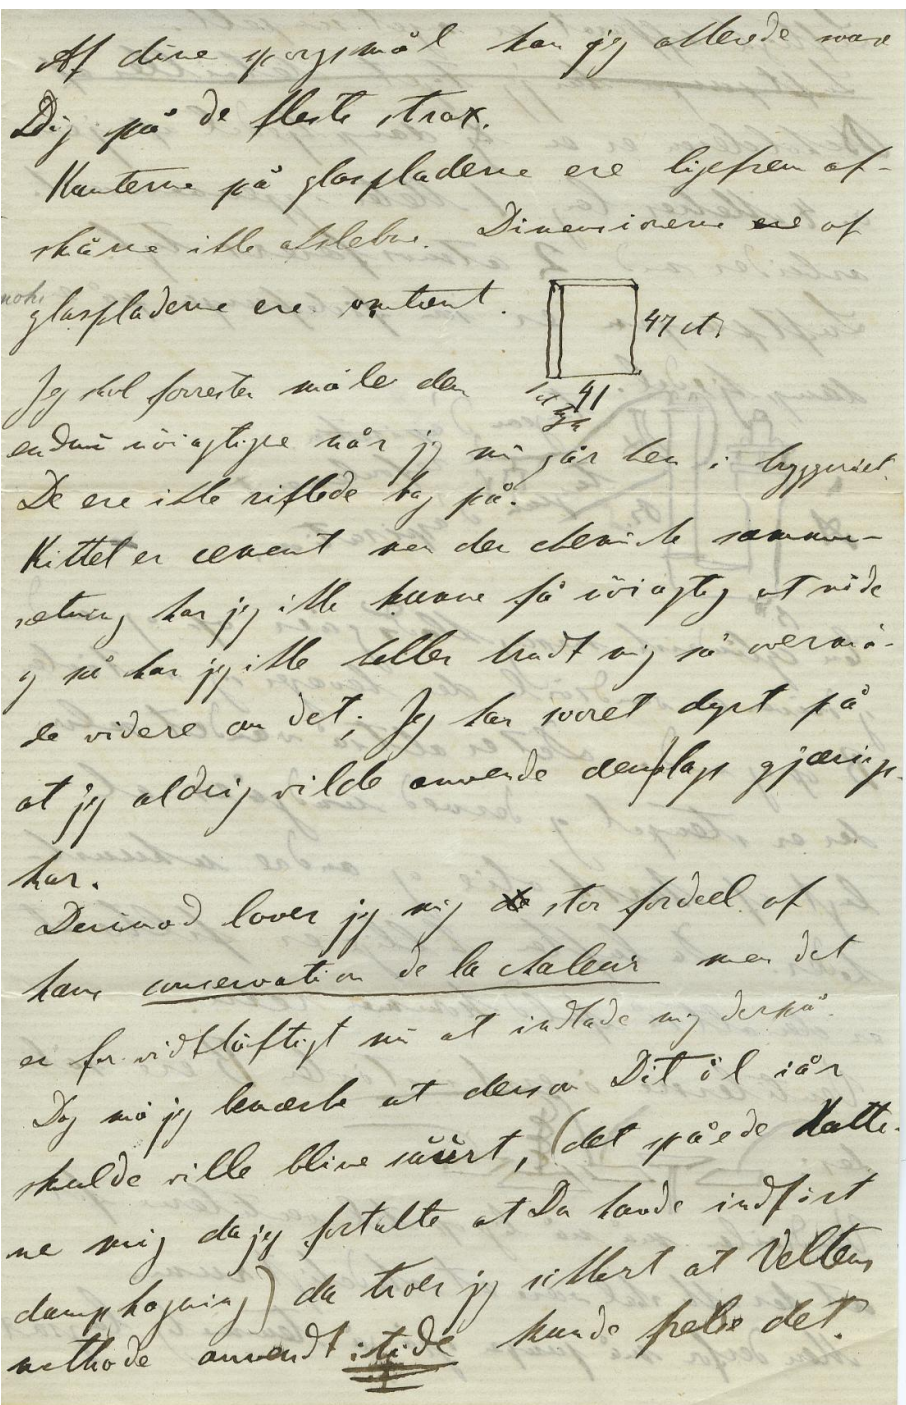 Af dine spørgsmål kan jeg allerede svare
Dig på de fleste strax.
Kanterne på glaspladerne ere ligefrem af-
skårne ikke afslebne. Dimensionerne af
glaspladerne ere omtrent.
47 ct.
41
Jeg skal forresten måle den
endnu nöiagtigre når jeg nu går hen i bryggeriet.
De ere ikke riflede bag på.
Kittet er cement men den chemiske sammen-
sætning har jeg ikke kunne få nöiagtig at vide
og nu har jeg ikke heller brudt mig så overmå-
de videre om det; Jeg har svoret dyrt på
at jeg aldrig vilde anvende den slags gjærings-
kar.
Derimod lover jeg mig stor fordeel af
hans conservation de la chaleur men det
er for vidtlöftigt nu at indlade mig derpå.
Dog må jeg bemærke at dersom Dit öl iår
skulde ville blive suurt, (det spåede Hatte-
ne mig da jeg fortalte at Du havde indfört
dampkogning) da troer jeg sikkert at Veltens
methode anvendt itide kunde frelse det.